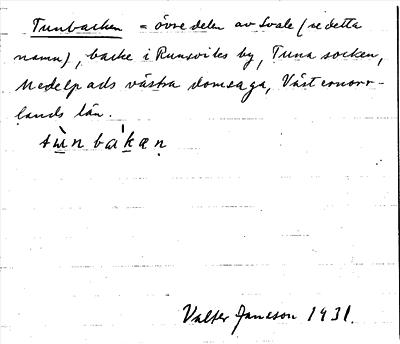 Tunbacken = övre delen av Svale (se detta
namn), backe i Runsviks by, Tuna socken,
Medelpads västra domsaga, Västernorr-
lands län.
tùnbákæn
Valter Jansson 1931.